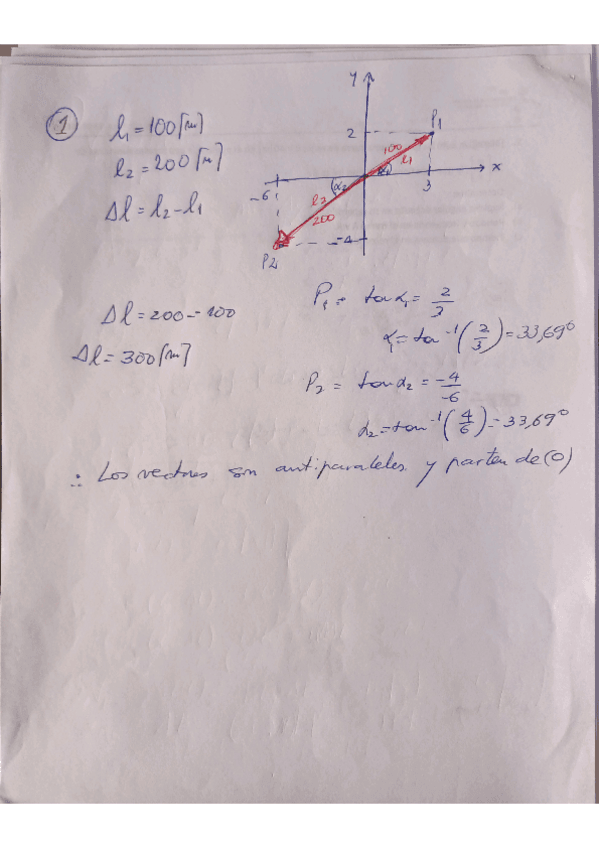 1
l₁ = 100 [m]
l₂ = 200 [m]
Δl = l₂ - l₁
y
P1
2
100
l₁
α₁
x
-6
α₂
l₂
3
200
-4
P2
Δl = 200 - - 100
Δl = 300 [m]
P₁ = tan α₁ = 2/3
α₁ = tan⁻¹ (2/3) = 33,69°
P₂ = tan α₂ = -4/-6
α₂ = tan⁻¹ (4/6) = 33,69°
∴ Los vectores son antiparalelos y parten de (0)